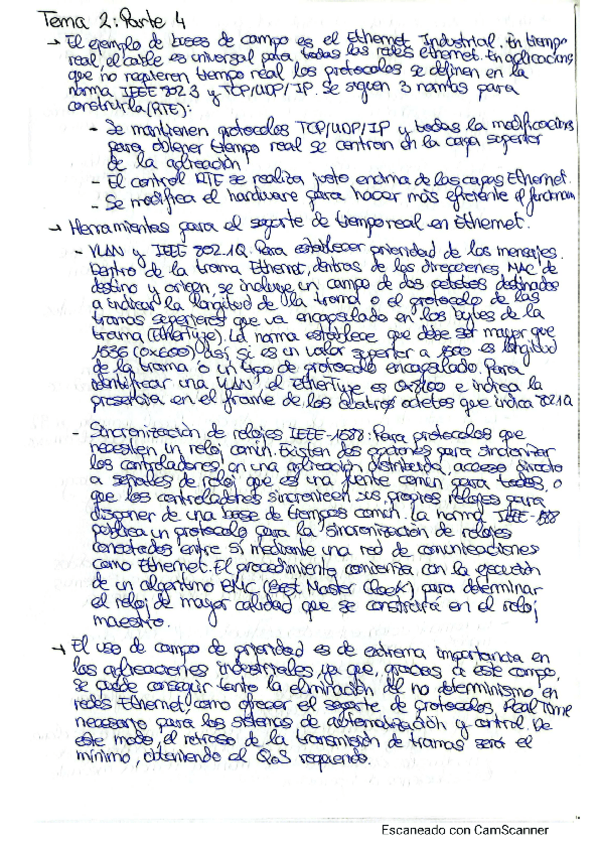 Tema 2: Parte 4
→ El ejemplo de buses de campo es el Ethernet Industrial. En tiempo
real, el cable es universal para todas las redes ethernet. En aplicaciones
que no requieren tiempo real los protocolos se definen en la
norma IEEE 802.3 y TCP/UDP/IP. Se siguen 3 normas para
construirla (RTE):
- Se mantienen protocolos TCP/UDP/IP y todas la modificacions
para obtener tiempo real se centran en la capa superior
de la aplicación
- El control RTE se realiza justo encima de las capas Ethernet.
- Se modifica el hardware para hacer más eficiente el
→ Herramientas para el soporte de tiempo real en Ethernet.
- VLAN y IEEE 802.1Q. Para establecer prioridad de los mensajes.
Dentro de la trama Ethernet, dentras de las direcciones MAC de
destino y origen, se incluye un campo de dos octetos destinados
a indicar la longitud de la trama o el protocolo de las
tramas superiores que va encapsulado en los bytes de la
trama (EtherType). La norma establece que debe ser mayor que
1536 (0x600) así si es un valor superior a 1500 es longitud
de la trama o un tipo de protocolo encapsulado. Para
identificar una VLAN, el EtherType es 0x8100 e indica la
presencia en el frame de los cuatros octetos que indica 802.1Q
- Sincronización de relojes IEEE-1588: Para protocolos que
necesiten un reloj común. Existen dos opciones para sincronizar
los controladores en una aplicación distribuida, acceso directo
a señales de reloj que es una fuente común para todos, o
que los controladores sincronicen sus propios relojes para
disponer de una base de tiempos común. La norma IEEE-1588
publica un protocolo para la sincronización de relojes
conectados entre sí mediante una red de comunicaciones
como Ethernet. El procedimiento comienza con la ejecución
de un algoritmo BMC (Best Master Clock) para determinar
el reloj de mayor calidad que se construirá en el reloj
maestro.
→ El uso de campo de prioridad es de extrema importancia en
las aplicaciones industriales, ya que, gracias a este campo,
se puede conseguir tanto la eliminación del no determinismo en
redes Ethernet, como ofrecer el soporte de protocolos, Real Time
necesario para los sistemas de automatización y control. De
este modo, el retraso de la transmisión de tramas será el
mínimo, obteniendo el QoS requerido.
Escaneado con CamScanner